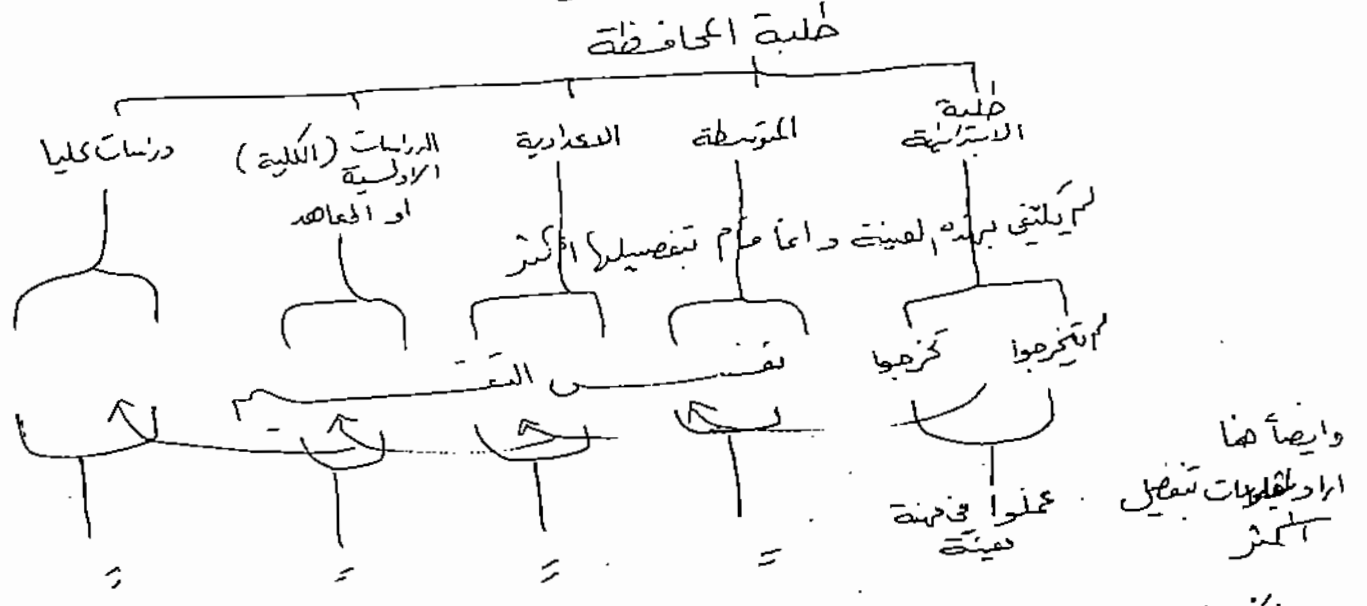 طلبة المحافظة
طلبة الابتدائية
المتوسطة
الاعدادية
الدراسات (الكلية)
الاولية
او المعاهد
دراسات عليا
لم يكتفي بهذه العينة وانما قام بتفصيلها اكثر
لم يتخرجوا
تخرجوا
نفس التقسيم
وايضأ هنا
اراد معلومات تفصيل
اكثر
عملوا في مهنة
معينة
= = = =